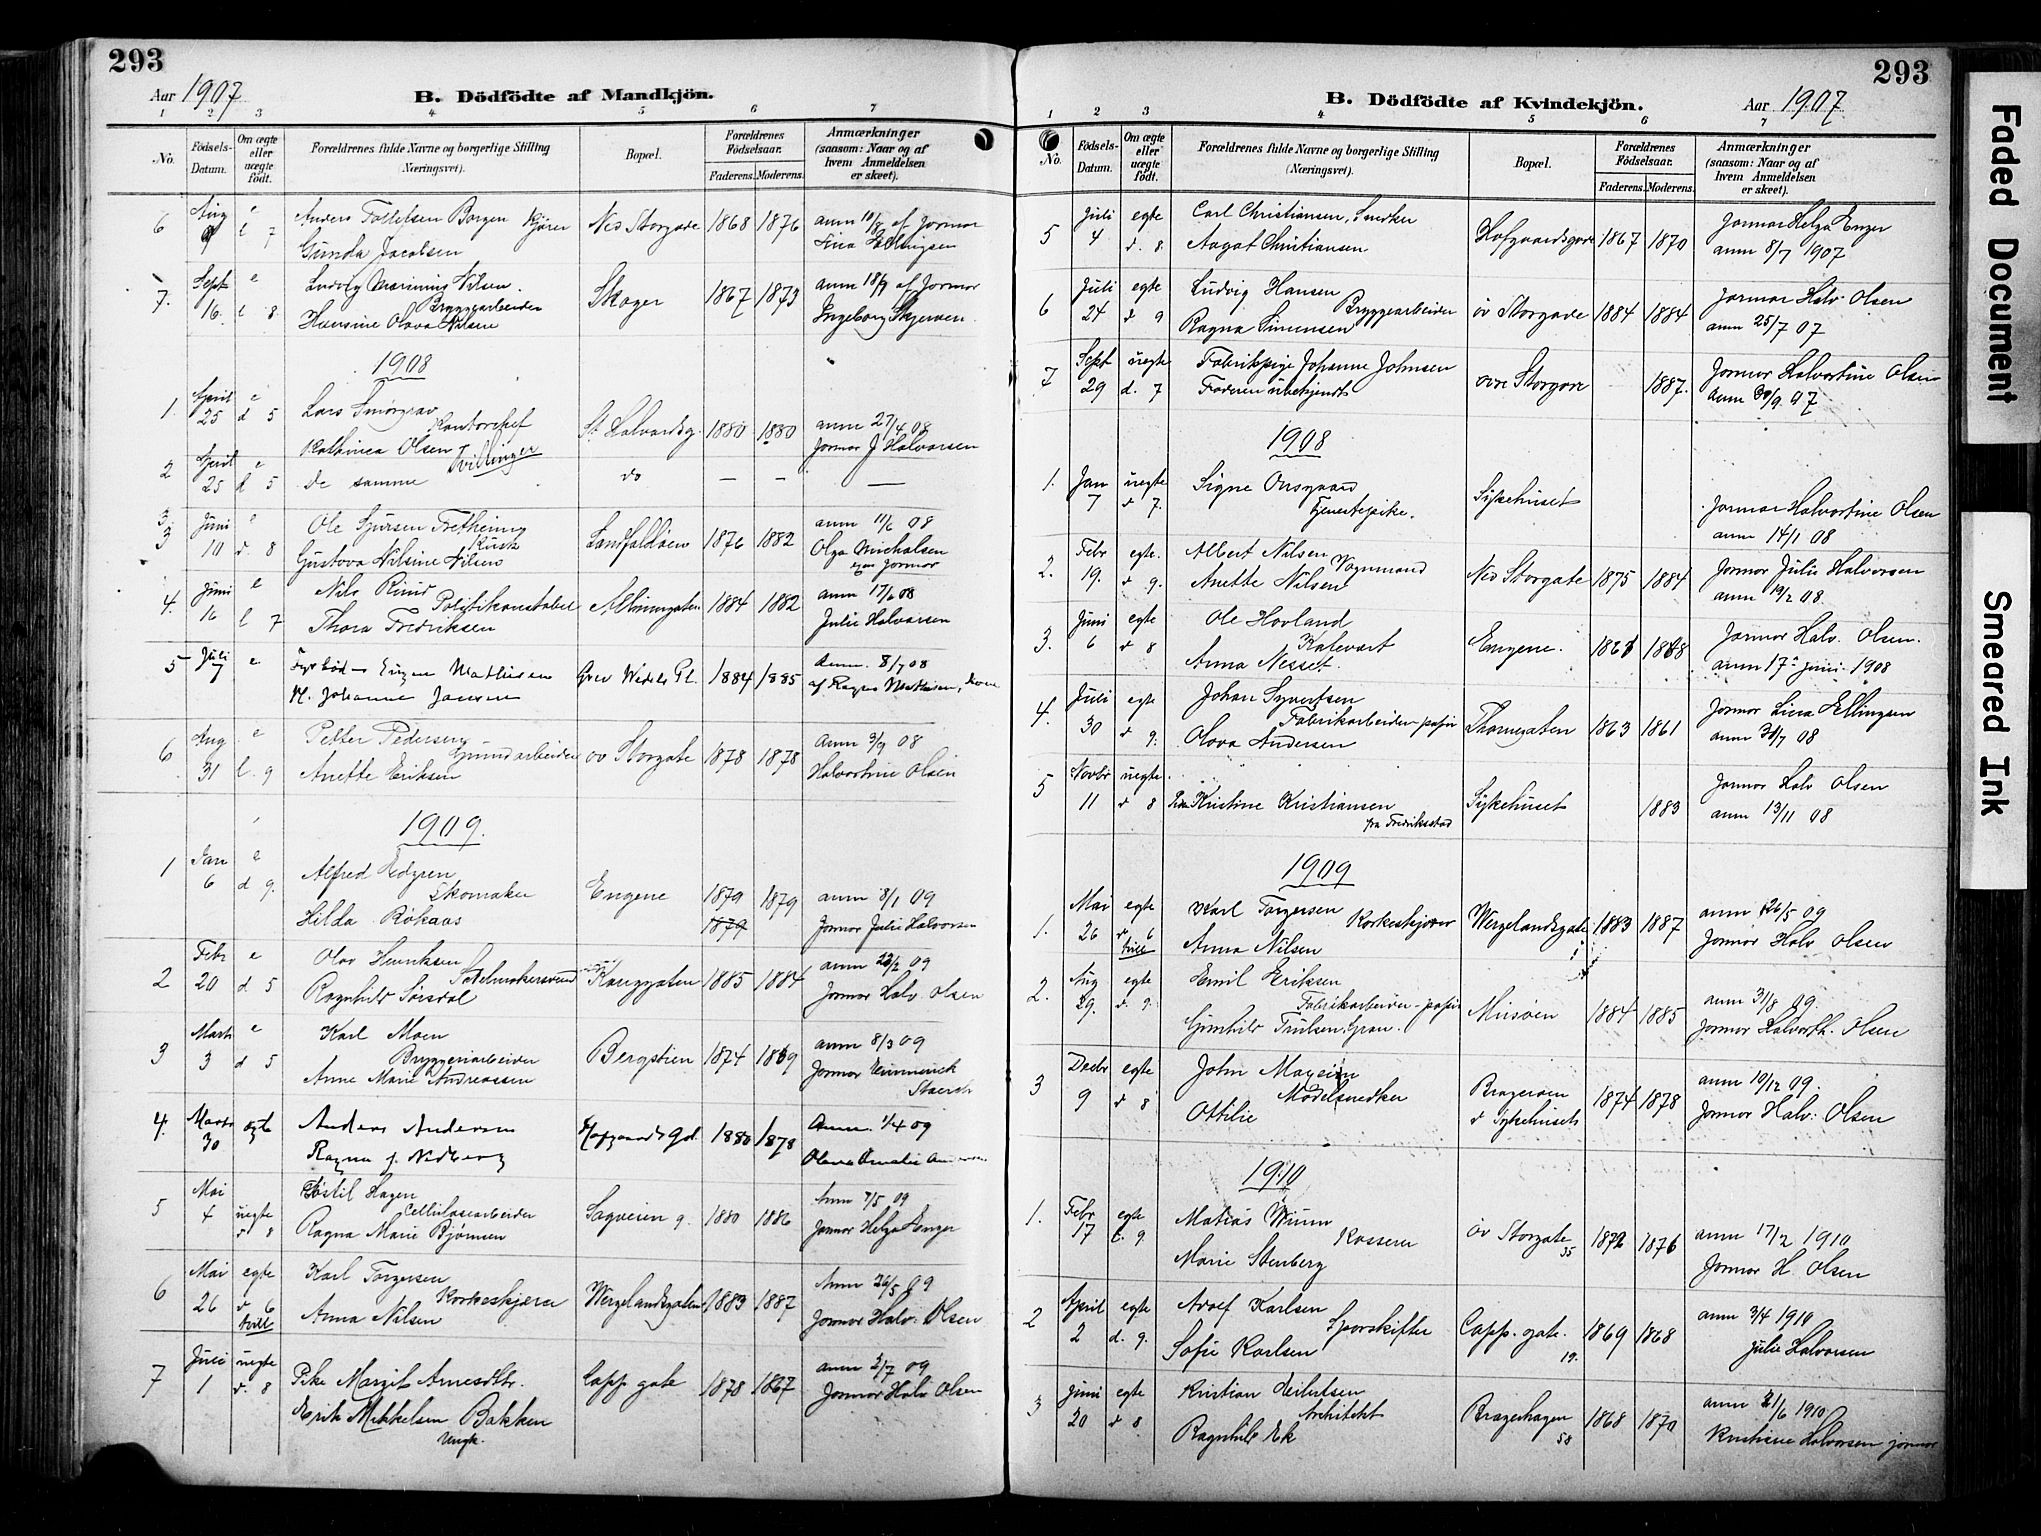 293
Aar 1907
B. Dödfödte af Mandkjön.
1 2 3 4 5 6 7
No.
Födsels-Datum.
Om ægte eller uægte födt.
Forældrenes fulde Navne og borgerlige Stilling (Næringsvei).
Bopæl.
Forældrenes Födselsaar.
Faderens. Moderens.
Anmærkninger (saasom: Naar og af hvem Anmeldelsen er skeet).
6 Aug 9 e l 7 Anders Tollefsen Borgen Kjører Ned Storgade 1868 1876 anm 10/8 af Jormor
Gunda Jacobsen Lina Ellingsen
7. Sept 16. e l 8 Ludvig Marinius Nilsen. Skoger 1867 1873 anm 18/9 af Jormor
Bryggearbeider
Hansine Olava Nilsen Ingeborg Skjerven
1908
1. April 25 e d 5 Lars Smørgrav St. Halvardsg. 1880 1880 anm 27/4 08
Kontorchef
Kathinca Olsen Jormor J Halvorsen
Tvillinger
2 April 25 e d 5 de samme do — — —
3 Juni 10 e d. 8 Ole Sjursen Landfaldöen 1876 1882 anm 11/6 08
Kusk
Gustava Nilsine Nilsen Olga Michalsen
exam jormor
4. Juni 16 e l 7 Nils Rund Albumsgaten 1884 1882 anm 17/6 08
Politikonstabel
Thora Fredriksen Julie Halvorsen
5 Juli 7 e Fyrbød— Eugen Mathisen Grev Wedels Pl. 1884 1885 Anm. 8/7 08
H. Johanne Jansen af Ragna Mathisen,
6 Aug 31 e l. 9 Petter Pedersen öv Storgate 1878 1878 Anm 3/9 08
Grundarbeider
Anette Eriksen Halvortine Olsen
1909.
1 Jan 6 e d 9. Alfred Edgren Engene 1879 1879 anm 8/1 09
Skomaker
Hilda Rökaas 1879 Jormor Julie Halvorsen
2 Febr 20 e d 5 Olav Henriksen Konggaten 1885 1884 anm 22/2 09
Sadelmakersvend
Ragnhild Sörsdal Jormor Halv Olsen
3 Marts 3 e d 5 Karl Moen Bergstien 1874 1869 anm 8/3 09
Bryggeriarbeider
Anne Marie Andreassen Jormor
4. Marts 30 egte Anders Andersen Hofgaards Gd. 1880 1878 Anm. 1/4 09
Ragna f. Nedberg Olava Amalie Andersen
5 Mai 4 uegte d 8 Töstil Hagen Sagveien 9. 1880 1886 Anm 7/5 09
Cellulosearbeider
Ragna Marie Bjørnsen Jormor Helga Enger
6 Mai 26 egte d 6 tvill Karl Torgersen Wergelandsgaten 1883 1887 Anm 26/5 09
Korkeskjærer
Anna Nilsen Jormor Halv. Olsen
7 Juli 1 uegte d. 8 Pike Margit Arnesdtr. Capp gate 1878 1867 anm 2/7 09
Erik Mikkelsen Bakken Jormor Halv Olsen
Ungk.
293
B. Dödfödte af Kvindekjön.
Aar 1907
1 2 3 4 5 6 7
No.
Födsels-Datum.
Om ægte eller uægte födt.
Forældrenes fulde Navne og borgerlige Stilling (Næringsvei).
Bopæl.
Forældrenes Födselsaar.
Faderens. Moderens.
Anmærkninger (saasom: Naar og af hvem Anmeldelsen er skeet).
5 Juli 4 egte d. 8 Carl Christiansen, Snedker Hofgaardsgade 1867 1870 Jormor Helga Enger
Aagot Christiansen anm 8/7 1907
6 Juli 24 egte d 9 Ludvig Hansen öv Storgade 1884 1884 Jormor Halv. Olsen
Bryggearbeider
Ragna Simensen anm 25/7 07
7 Sept 29 uegte d. 7 Fabrikpige Johanne Johnsen övre Storgade 1887. Jormor Halvortine Olsen
Faderen ubekjendt anm 30/9. 07
1908
1. Jan 7 uegte d 7. Signe Onsgaard Sykehuset Jormor Halvortine Olsen
Tjenestepike. anm 14/1 08
2. Febr 19. egte. d 9. Albert Nilsen Ned Storgate 1875 1884 Jormor Julie Halvorsen
Vognmand
Anette Nilsen anm 19/2 08.
3. Juni 6 egte d 8 Ole Hovland Engene. 1868 Jormor Halv. Olsen.
Anna Nesset. anm 17de juni 1908
4. Juli 30 egte d 9. Johan Syvertsen Thornegaten 1863 1861 Jormor Lina Ellingsen
Fabrikarbeider—papir
Olava Andersen anm 30/7 08
5 Novbr 11 uegte. d 8 Pike Kristine Kristiansen Sykehuset 1883 Jormor Halv Olsen
fra Fredriksstad anm 13/11 08
1909
1. Mai 26 egte d 6 tvill Karl Torgersen Wergelandsgate 1883 1887 anm 26/5 09
Korkeskjærer
Anna Nilsen Jormor Halv Olsen
2. Aug 29. egte d 9. Emil Eriksen Müsöen 1884 1885 anm 31/8 09.
Fabrikarbeider—papir
Gunhild Trulsen Gran. Jormor Halvorth. Olsen
3 Decbr 9 egte d 8 John Brageröen 1874 1878 anm 10/12 09.
Modelsnedker
Ottilie d Sykehuset Jormor Halv: Olsen
1910
1. Febr 17 egte l. 9. Matias Wium öv Storgate 35 1872 1876 anm 17/2 1910
Kasserer
Marie Stenberg Jormor H. Olsen
2 April 2 egte d. 9. Adolf Karlsen Capp. gate. 19. 1869 1868 anm 3/4 1910
Sporskifter
Sofie Karlsen Julie Halvorsen
3 Juni 20 egte d 8 Kristian Eilertsen Bragerhagen 58 1868 1870 anm 21/6 1910
Architekt
Ragnhild Ek Kristiane Halvorsen jormor
Faded Document
Smeared Ink